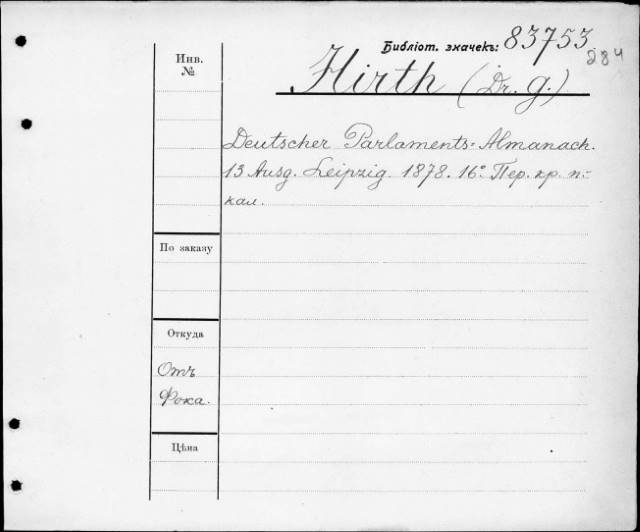 Библіот. значекъ: 83753
284
Инв.
№
Hirth (Dr. G.)
Deutscher Parlaments-Almanach.
13 Ausg. Leipzig. 1878. 16° Пер. кр. п.-
кал.
По заказу
Откуда
Отъ
Фока.
Цѣна